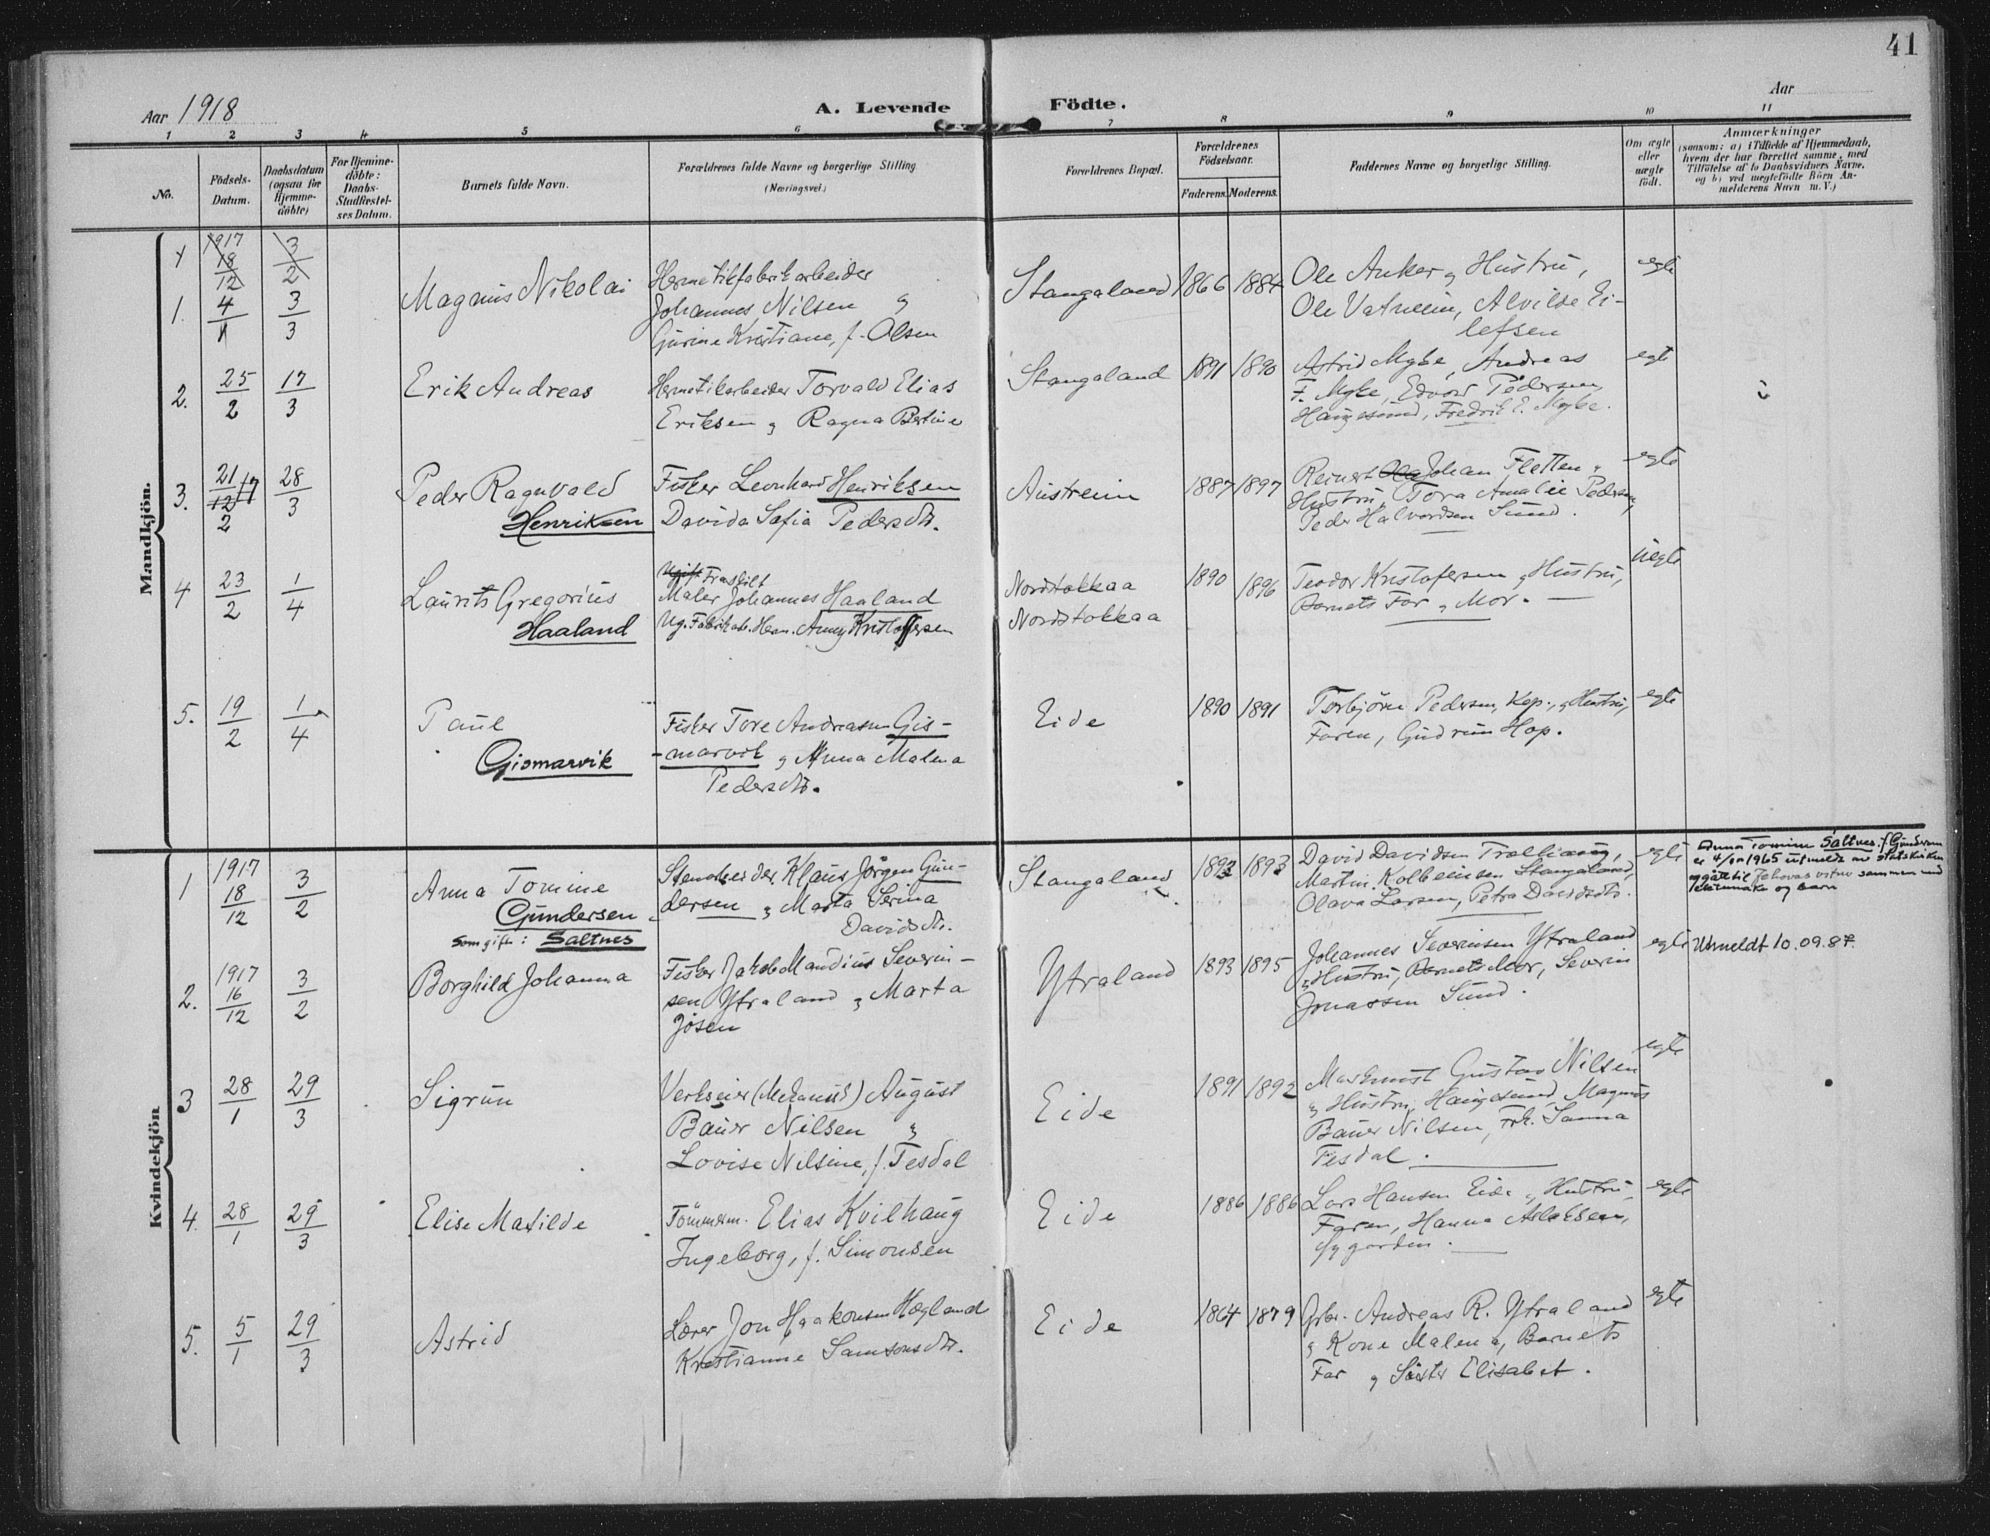 41
Aar 1918
A. Levende Födte.
Aar
1 2 3 4 5 6 7 8 9 10 11
No.
Födsels-Datum.
Daabsdatum (ogsaa for Hjemme-döbte)
For Hjemme-döbte: Daabs-Stadfæstel-ses Datum.
Barnets fulde Navn.
Forældrenes fulde Navne og borgerlige Stilling
(Næringsvei.)
Forældrenes Bopæl.
Forældrenes Födselsaar.
Faderens. Moderens.
Faddernes Navne og borgerlige Stilling.
Om ægte eller uægte födt.
Anmærkninger
(saasom: a) i Tilfælde af Hjemmedaab, hvem der har forrettet samme, med Tilföielse af to Daabsvidners Navne, og b) ved uægtefödte Börn An-melderens Navn m. V.)
Mandkjön.
1917
18/12 3/2
1. 4/1 3/3 Magnus Nikolai
Hermetikfabrikarbeider
Johannes Nilsen og
Gurine Kristiane, f. Olsen
Stangaland 1866 1884
Ole Anker og Hustru,
Ole Vatneim, Alvilde Ei-
lefsen
egte
2. 25/2 17/3 Erik Andreas
Hermetikarbeider Torvald Elias
Eriksen og Ragna Bertine
Stangaland 1891 1890
Astrid Myhe, Andreas
F. Myhe, Edvard Pedersen
Haugesund, Fredrik E. Myhe.
egt
3. 21/2 28/3 Peder Ragnvald
Henriksen
Fisker Leonhard Henriksen
Davida Sofia Pedersdtr.
Austreim 1887 1897
Reinert Johan Fletten og
Hustru, Tora Amalie Pedersen,
Peder Halvordsen Sund.
egte
4 23/2 1/4 Laurits Gregorius
Haaland
Ugift Fraskilt
Maler Johannes Haaland
Ug. Fabrikarb. Herm. Anny Kristoffersen
Nordstokkaa
Nordstokkaa
1890 1896
Teodor Kristofersen og Hustru,
Barnets Far og Mor.
uegte
5. 19/2 1/4 Paul
Gismarvik
Fisker Tore Andreasen Gis-
marvik og Anna Malena
Pedersdtr.
Eide 1890 1891
Torbjörn Pedersen, Kop., og Hustru,
Faren, Gudrun Hop.
egte
Kvindekjön
1 1917 18/12 3/2 Anna Tomine
Gundersen
Som gift: Saltnes
Stenarbeider Klaus Jörgen Gun-
dersen og Marta Serina
Davidsdtr.
Stangaland 1892 1893
David Davidsen
Martin Kolbeinsen Stangaland,
Olava Larsen, Petra Davidsdtr.
egte
Anna Tomine Saltnes f. Gundersen
er 4/10 1965 utmeldt av statskirken
og gått til Jehovas vitner sammen med
ektemake og barn
2. 1917 16/12 3/2 Borghild Johanna
Fisker Jakob Mandius Severin-
sen Ytraland og Marta
Jösen
Ytraland 1893 1895
Johannes Severinsen Ytraland
og Hustru, Barnets Mor, Severin
Jonassen Sund.
egte
Utmeldt 10.09.87.
3 28/1 29/3 Sigrun
Verkseier (Mekanisk) August
Bauer Nilsen og
Lovise Nilsine, f. Tesdal
Eide 1891 1892
Maskinist Gustav Nilsen
og Hustru, Haugesund, Magnus
Bauer Nilsen, Frk. Sanna
Tesdal.
egte
4. 28/1 29/3 Elise Matilde
Tömmerm. Elias Kvilhaug
Ingeborg, f. Simonsen
Eide 1886 1886
Lars Hansen Eide og Hustru,
Faren, Hanna Aslaksen,
Sygarden.
egte
5. 5/1 29/3 Astrid
Lærer Jon Haakonsen Hægland
Kristianne Samsonsdtr.
Eide 1864 1879
Gbr. Andreas R. Ytraland
og Kone Malena, Barnets
Far og Söster Elisabet.
egte